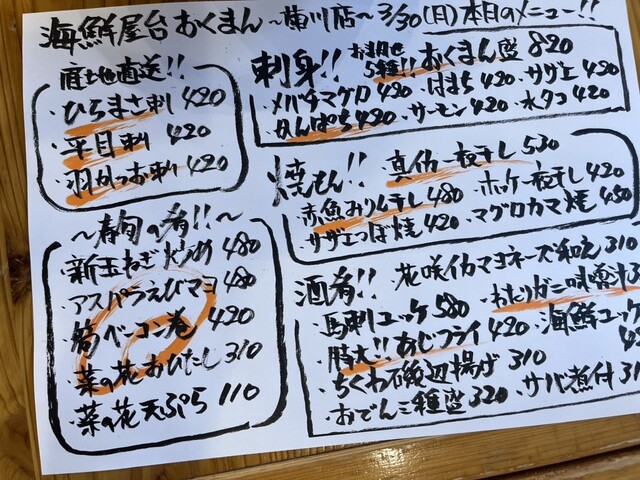 海鮮屋台おくまん 〜東川店〜 3/30(月)本日のメニュー!!
産地直送!!
・ひらまさ刺 420
・平目刺 420
・羽かつお刺 420
刺身!! お まかせ 5種!! おくまん盛 820
・メバチマグロ 420 ・はまち 420 ・サザエ 420
・かんぱち 420 ・サーモン 420 ・水タコ 420
焼もん!! 真イカ一夜干し 530
・赤魚みりん干し 480 ・ホッケ一夜干し 420
・サザエつぼ焼 420 ・マグロカマ焼 480
〜春旬の肴!!〜
・新玉ねぎ炒め 480
・アスパラえびマヨ 480
・筍ベーコン巻 420
・菜の花おひたし 310
・菜の花天ぷら 110
酒肴!! ・花咲イカマヨネーズ和え 310
・馬刺ユッケ 580 ・わたりガニ味噌
・特大!!あじフライ 420 ・海鮮ユッケ
・ちくわ磯辺揚げ 310
・おでん三種盛 320 ・サバ煮付